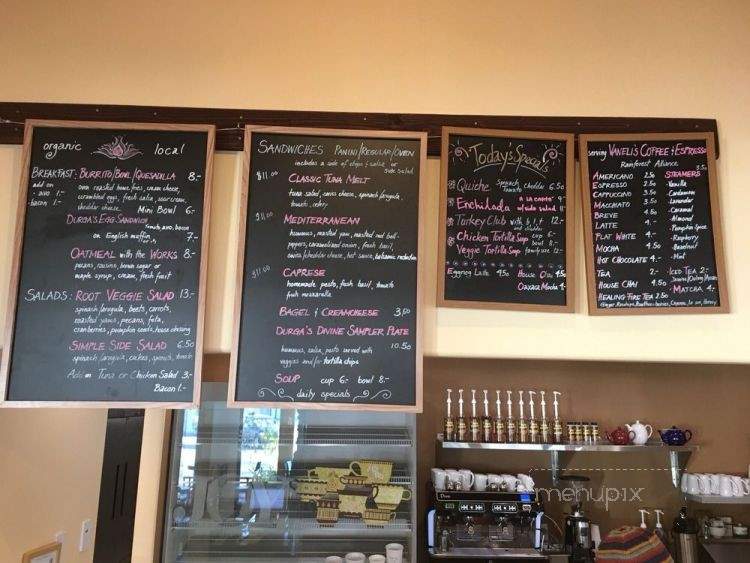 organic local
BREAKFAST: BURRITO/BOWL/QUESADILLA 8.-
add on oven roasted home fries, vegan cheese,
- avo 1.- scrambled eggs, fresh salsa, sour cream,
bacon 1.- cheddar cheese
Mini Bowl 6.-
DURGA'S EGG SANDWICH
tomato, avo, bacon
on English muffin 7.-
OATMEAL with the WORKS 8.-
pecans, raisins, brown sugar or
maple syrup, cream, fresh fruit
SALADS: ROOT VEGGIE SALAD 13.-
spinach/arugula, beets, carrots,
roasted yams, pecans, feta,
cranberries, pumpkin seeds, house dressing
SIMPLE SIDE SALAD 6.50
spinach/arugula, cukes, sprouts, tomato
Add on Tuna or Chicken Salad 3.-
Bacon 1.-
SANDWICHES PANINI/REGULAR/OVEN
includes a side of chips & salsa or
side salad
$11.00 CLASSIC TUNA MELT
tuna salad, swiss cheese, spinach/arugula,
tomato, celery
$11.00 MEDITERRANEAN
hummus, roasted yam, roasted red bell-
peppers, caramelized onion, fresh basil,
swiss/cheddar cheese, hot sauce, balsamic reduction
$11.00 CAPRESE
homemade pesto, fresh basil, tomato
fresh mozzarella
BAGEL & CREAMCHEESE 3.50
DURGA'S DIVINE SAMPLER PLATE
10.50
hummus, salsa, pesto served with
veggies and/or tortilla chips
SOUP cup 6.- bowl 8.-
daily specials
Today's Specials
Quiche Spinach, Tomato, Cheddar 6.50
Enchilada A LA CARTE 9.-
w/side salad 11.-
Turkey Club with b, l, t 12.-
and cheddar
Chicken Tortilla Soup cup 6.-
bowl 8.-
Veggie Tortilla Soup 12.-
Eggnog Latte 4.50 House Chai 4.50
Oaxaca Mocha 4.-
serving VANELI'S COFFEE & ESPRESSO
Rainforest Alliance
AMERICANO 2.50 STEAMERS 3.50
ESPRESSO 2.50 - Vanilla
CAPPUCCINO 3.50 - Cardamom
MACCHIATO 3.50 - Lavender
BREVE 4.50 - Caramel
LATTE 4.- - Almond
FLAT WHITE 4.- - Pumpkin Spice
MOCHA 4.50 - Raspberry
HOT CHOCOLATE 4.- - Hazelnut
- Mint
TEA 2.- ICED TEA 2.-
HOUSE CHAI 4.50
HEALING FIRE TEA 2.50 - MATCHA 4.-
menupix